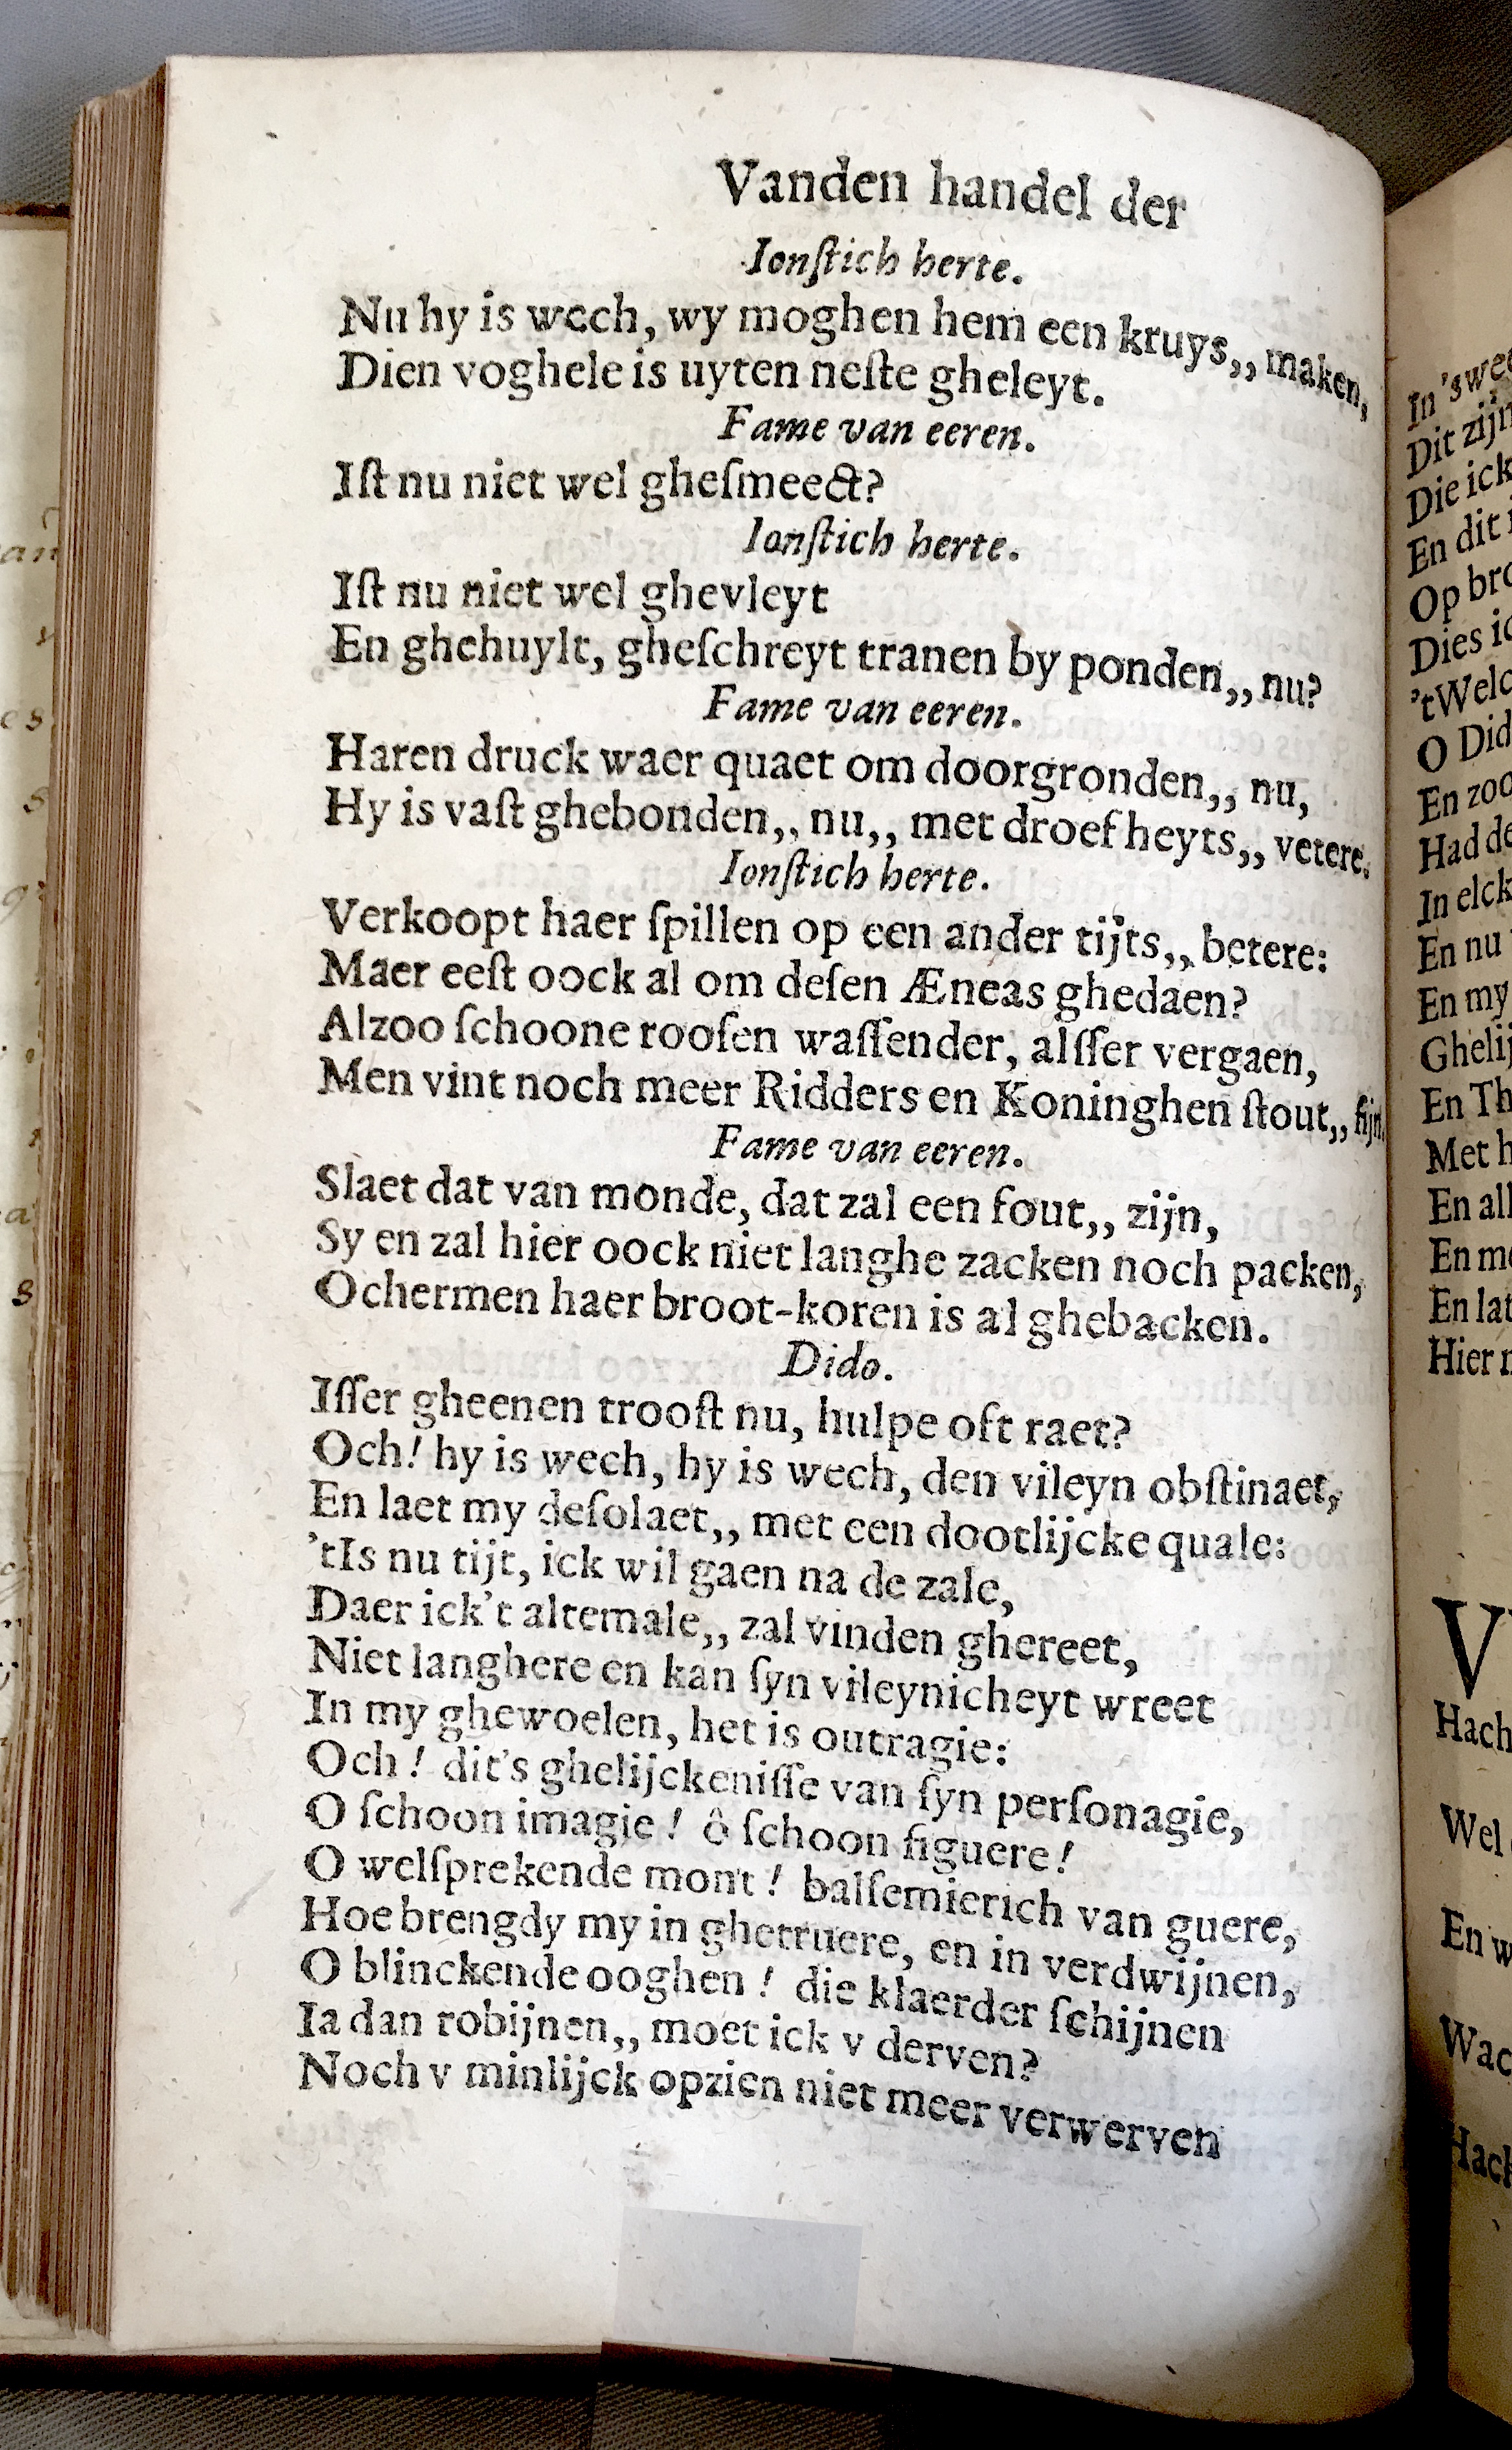 Vanden handel der
Ionſtich herte.
Nu hy is wech, wy moghen hem een kruys,, maken,
Dien voghele is uyten neſte gheleyt.
Fame van eeren.
Iſt nu niet wel gheſmeect?
Ionſtich herte.
Iſt nu niet wel ghevleyt
En ghehuylt, gheſchreyt tranen by ponden,, nu?
Fame van eeren.
Haren druck waer quaet om doorgronden,, nu,
Hy is vaſt ghebonden,, nu,, met droefheyts,, vetere.
Ionſtich herte.
Verkoopt haer ſpillen op een ander tijts,, betere:
Maer eeſt oock al om deſen Æneas ghedaen?
Alzoo ſchoone rooſen waſſender, alſſer vergaen,
Men vint noch meer Ridders en Koninghen ſtout,, fijn.
Fame van eeren.
Slaet dat van monde, dat zal een fout,, zijn,
Sy en zal hier oock niet langhe zacken noch packen,
Ochermen haer broot-koren is al ghebacken.
Dido.
Iſſer gheenen trooſt nu, hulpe oft raet?
Och! hy is wech, hy is wech, den vileyn obſtinaet,
En laet my deſolaet,, met een dootlijcke quale:
'tIs nu tijt, ick wil gaen na de zale,
Daer ick't altemale,, zal vinden ghereet,
Niet langhere en kan ſyn vileynicheyt wreet
In my ghewoelen, het is outragie:
Och! dit's ghelijckeniſſe van ſyn perſonagie,
O ſchoon imagie! ô ſchoon figuere!
O welſprekende mont! balſemierich van guere,
Hoe brengdy my in ghetruere, en in verdwijnen,
O blinckende ooghen! die klaerder ſchijnen
Ia dan robijnen,, moet ick v derven?
Noch v minlijck opzien niet meer verwerven
In 'swee
Dit zijn
Die ick
En dit
Op bro
Dies ic
'tWelc
O Did
En zoo
Had de
In elck
En nu
En my
Ghelij
En Th
Met h
En all
En me
En lat
Hier
V
Hach
Wel
En w
Wac
Hach